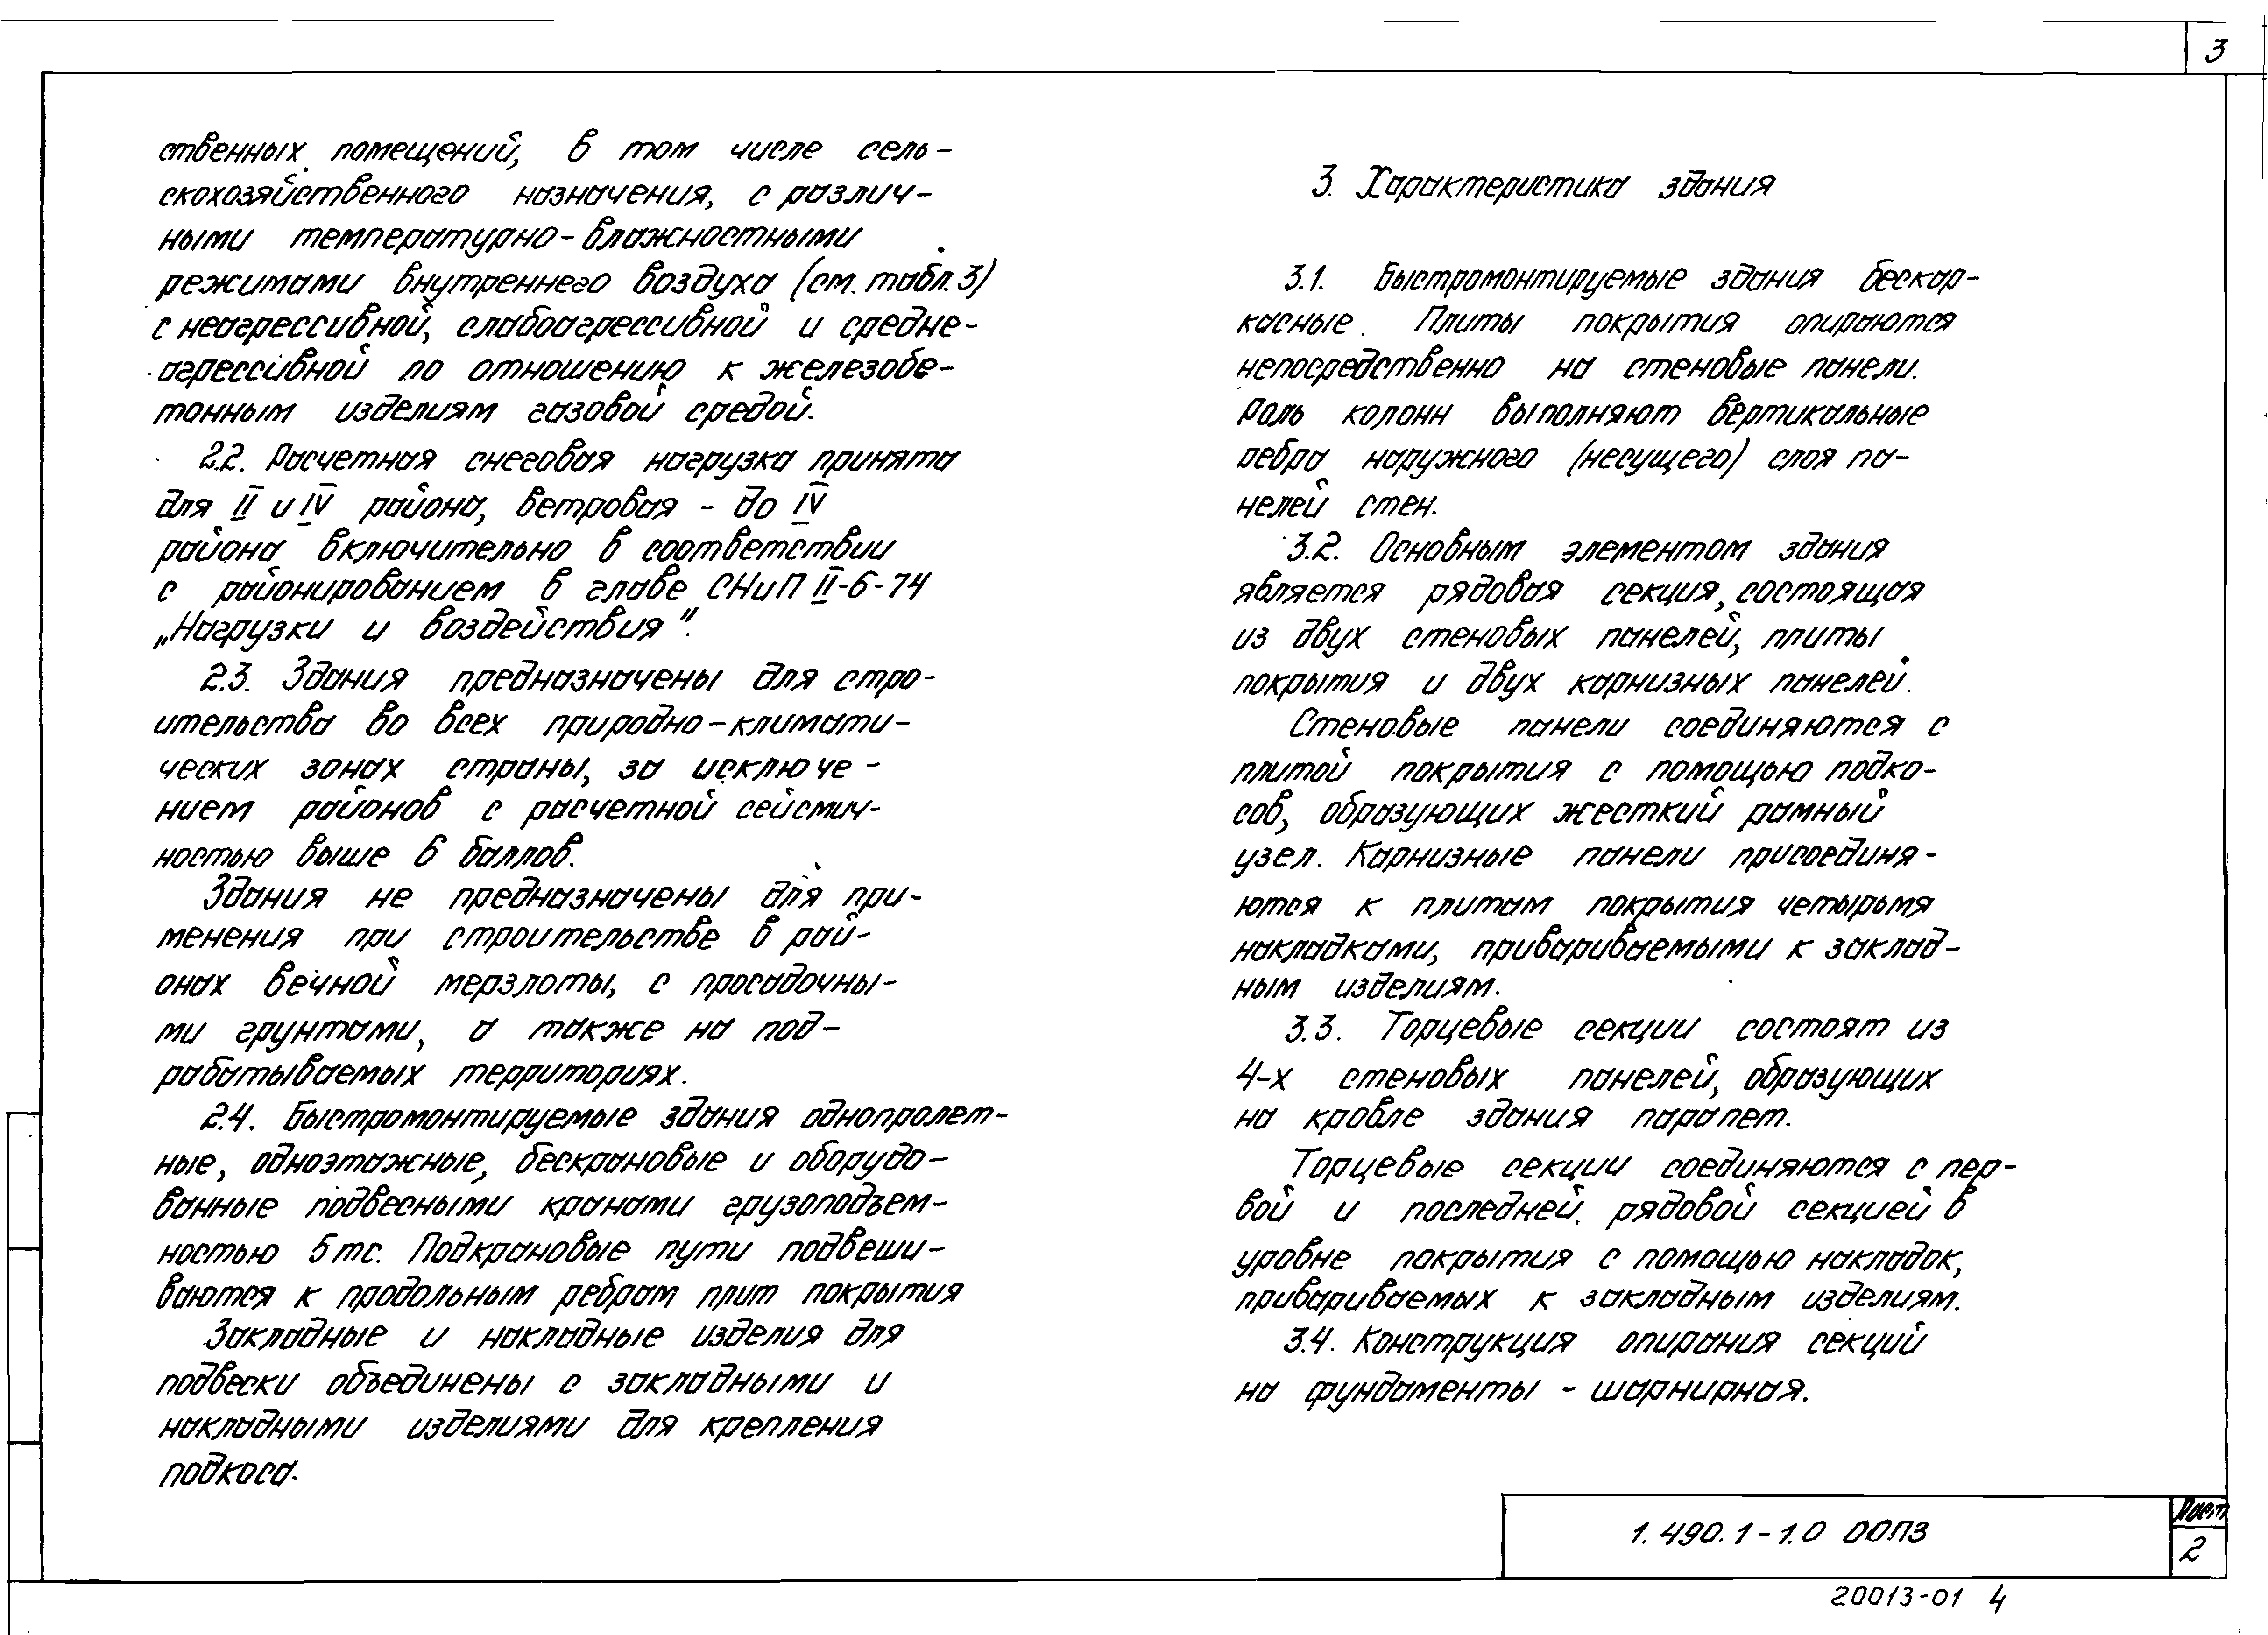 3
ственных помещений, в том числе сель-
скохозяйственного назначения, с различ-
ными температурно-влажностными
режимами внутреннего воздуха (см. табл. 3)
с неагрессивной, слабоагрессивной и средне-
агрессивной по отношению к железобе-
тонным изделиям газовой средой.
2.2. Расчетная снеговая нагрузка принята
для II и IV района, ветровая - до IV
района включительно в соответствии
с районированием в главе СНиП II-6-74
„Нагрузки и воздействия".
2.3. Здания предназначены для стро-
ительства во всех природно-климати-
ческих зонах страны, за исключе-
нием районов с расчетной сейсмич-
ностью выше 6 баллов.
Здания не предназначены для при-
менения при строительстве в рай-
онах вечной мерзлоты, с просадочны-
ми грунтами, а также на под-
рабатываемых территориях.
2.4. Быстромонтируемые здания однопролет-
ные, одноэтажные, бескрановые и оборудо-
ванные подвесными кранами грузоподъем-
ностью 5 тс. Подкрановые пути подвеши-
ваются к продольным ребрам плит покрытия
Закладные и накладные изделия для
подвески объединены с закладными и
накладными изделиями для крепления
подкоса.
3. Характеристика здания
3.1. Быстромонтируемые здания бескар-
касные. Плиты покрытия опираются
непосредственно на стеновые панели.
Роль колонн выполняют вертикальные
ребра наружного (несущего) слоя па-
нелей стен.
3.2. Основным элементом здания
является рядовая секция, состоящая
из двух стеновых панелей, плиты
покрытия и двух карнизных панелей.
Стеновые панели соединяются с
плитой покрытия с помощью подко-
сов, образующих жесткий рамный
узел. Карнизные панели присоединя-
ются к плитам покрытия четырьмя
накладками, привариваемыми к заклад-
ным изделиям.
3.3. Торцевые секции состоят из
4-х стеновых панелей, образующих
на кровле здания парапет.
Торцевые секции соединяются с пер-
вой и последней рядовой секцией в
уровне покрытия с помощью накладок,
привариваемых к закладным изделиям.
3.4. Конструкция опирания секций
на фундаменты - шарнирная.
1.490.1-1.0 00ПЗ
Лист
2
20013-01 4